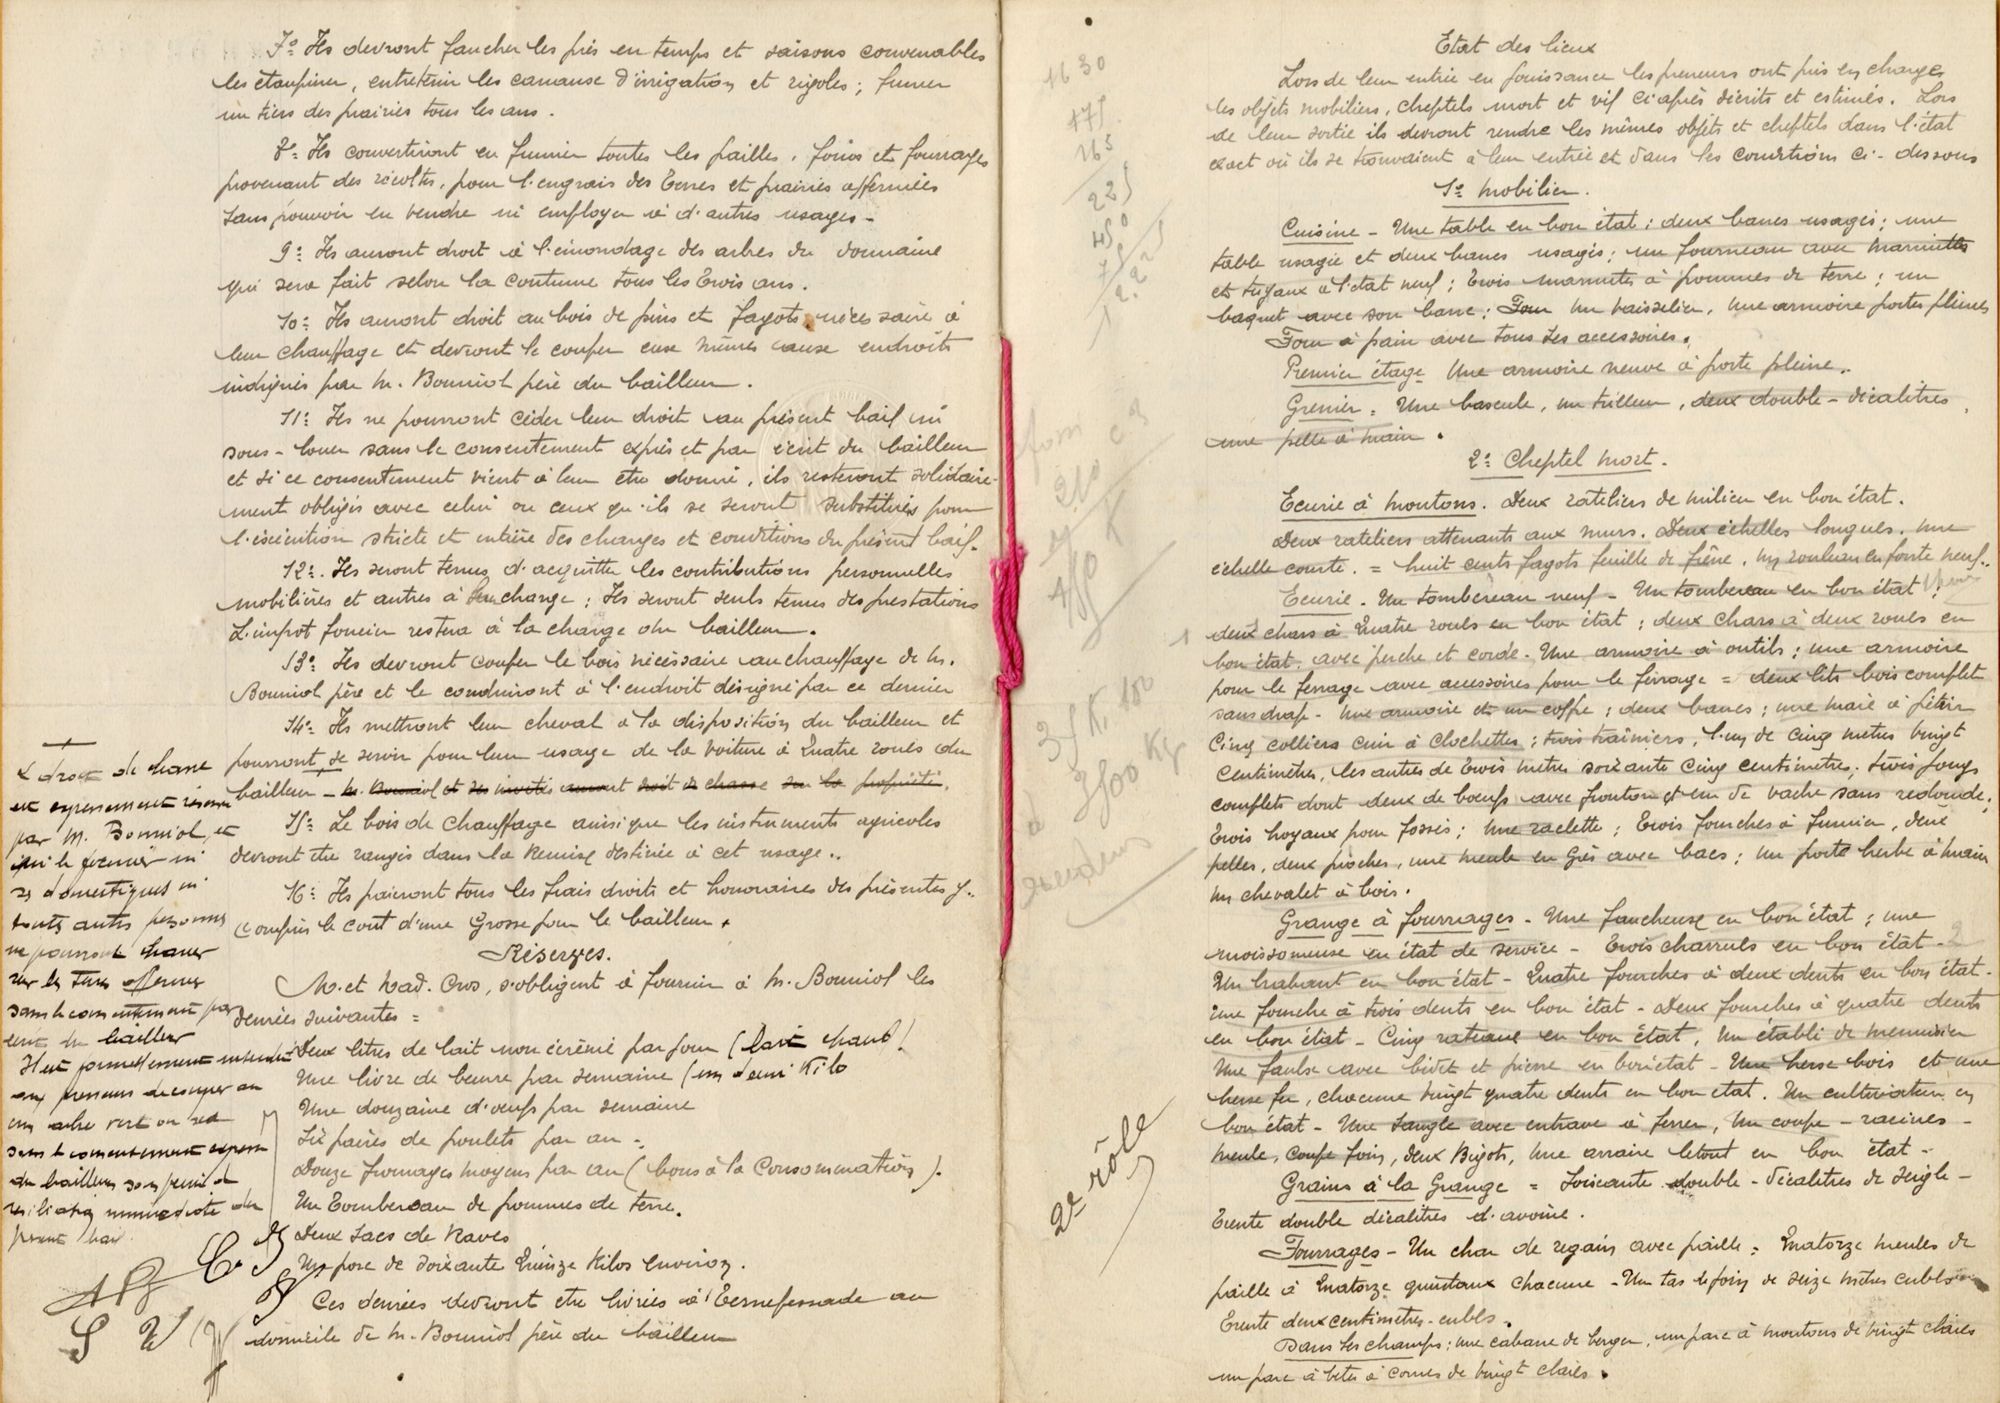 7º Ils devront faucher les prés en temps et saisons convenables
les étaupiner, entretenir les canaux d'irrigation et rigoles ; fumer
un tiers des prairies tous les ans.
8º Ils convertiront en fumier toutes les pailles, foins et fourrages
provenant des récoltes, pour l'engrais des terres et prairies affermées
sans pouvoir en vendre ni employer à d'autres usages -
9º Ils auront droit à l'émondage des arbres du domaine
qui sera fait selon la coutume tous les trois ans.
10º Ils auront droit au bois de pins et fagots nécessaire à
leur chauffage et devront le couper eux mêmes aux endroits
indiqués par M. Bonniol père du bailleur.
11º Ils ne pourront céder leur droit au présent bail ni
sous-louer sans le consentement exprès et par écrit du bailleur
et si ce consentement vient à leur etre donné, ils resteront solidaire-
ment obligés avec celui ou ceux qu'ils se seront substitués pour
l'exécution stricte et entière des charges et conditions du présent bail.
12º Ils seront tenus d'acquitter les contributions personnelles
mobilières et autres à leur charge ; Ils seront seuls tenus des prestations
L'impot foncier restera à la charge du bailleur.
13º Ils devront couper le bois nécessaire au chauffage de M.
Bonniol père et le conduiront à l'endroit désigné par ce dernier
14º Ils mettront leur cheval à la disposition du bailleur et
pourront se servir pour leur usage de la voiture à quatre roues du
bailleur - M. Bonniol et ses invités auront droit de chasse sur la propriété.
15º Le bois de chauffage ainsi que les instruments agricoles
devront etre rangés dans la Remise destinée à cet usage..
16º Ils paieront tous les frais droits et honoraires des présentes y..
compris le cout d'une Grosse pour le bailleur.
Réserves.
M. et Mad. Cros, s'obligent à fournir à M. Bonniol les
denrées suivantes =
Deux litres de lait non écrémé par jour (lait chaud)
Une livre de beurre par semaine (un demi Kilo
Une douzaine d'oeufs par semaine
Six paires de poulets par an -
Douze fromages moyens par an (bons à la Consommation).
Un Tombereau de pommes de terre.
Deux sacs de Raves
Un porc de soixante quinze Kilos environ.
Ces denrées devront etre livrées à
domicile de M. Bonniol père du bailleur
droit de chasse
est expressement réservé
par M. Bonniol, et
ni le fermier ni
ses domestiques ni
toute autre personne
ne pourront chasser
sur les terres affermées
sans le consentement par
écrit du bailleur
Il est formellement interdit
aux preneurs de couper au
cun arbre vert ou sec
sans le consentement exprès
du bailleur sous peine de
résiliation immédiate du
présent bail
1630
175
265
225
450
75
2e rôle
Etat des lieux
Lors de leur entrée en jouissance les preneurs ont pris en charge
les objets mobiliers, cheptels mort et vif ci après décrits et estimés. Lors
de leur sortie ils devront rendre les mêmes objets et cheptels dans l'état
exact où ils se trouvaient à leur entrée et dans les conditions ci-dessous
1º Mobilier.
Cuisine - Une table en bon état ; deux bancs usagés ; une
table usagée et deux bancs usagés ; un fourneau avec marmites
et tuyaux à l'état neuf ; trois marmites à pommes de terre ; un
baquet avec son banc ; Four Un vaisselier, une armoire portes pleines
Four à pain avec tous ses accessoires.
Premier étage Une armoire neuve à porte pleine.
Grenier = Une bascule, un trilleur, deux double-décalitres,
une pelle à main.
2º Cheptel mort.
Ecurie à moutons. Deux rateliers de milieu en bon état.
Deux rateliers attenants aux murs. Deux échelles longues, une
échelle courte. = huit cents fagots feuille de frêne, un rouleau en fonte neuf..
Ecurie - Un tombereau neuf - Un tombereau en bon état ;
deux chars à quatre roues en bon état ; deux chars à deux roues en
bon état, avec perche et corde - Une armoire à outils ; une armoire
pour le ferrage avec accessoires pour le ferrage = deux lits bois complet
sans drap - Une armoire et un coffre ; deux bancs ; une maie à pétrir
Cinq colliers cuir à clochettes ; trois traîniers, l'un de cinq mètres vingt
centimètres, les autres de trois mètres soixante cinq centimètres ; trois jougs
complets dont deux de boeufs avec fronton et un de vache sans redonde,
trois hoyaux pour fossés ; une raclette ; trois fourches à fumier, deux
pelles, deux pioches, une meule en grès avec bacs ; un porte herbe à main
un chevalet à bois.
Grange à fourrages - Une faucheuse en bon état ; une
moissonneuse en état de service - Trois charrues en bon état -
Un brabant en bon état - Quatre fourches à deux dents en bon état -
une fourche à trois dents en bon état - Deux fourches à quatre dents
en bon état - Cinq rateaux en bon état, Un établi de menuisier
Une faulx avec bidet et pierre en bon état - Une herse bois et une
herse fer, chacune vingt quatre dents en bon état. Un cultivateur en
bon état - Une sangle avec entrave à ferrer, Un coupe-racines -
meule, coupe foin, deux Bigots, Une araire le tout en bon état -
Grains à la Grange = Soixante double-décalitres de seigle -
trente double décalitres d'avoine.
Fourrages - Un char de regain avec paille ; quatorze meules de
paille à quatorze quintaux chacune - Un tas de foin de seize mètres cubes
trente deux centimètres-cubes.
Dans les champs : une cabane de berger, un parc à moutons de vingt claies
un parc à bêtes à cornes de vingt claies.